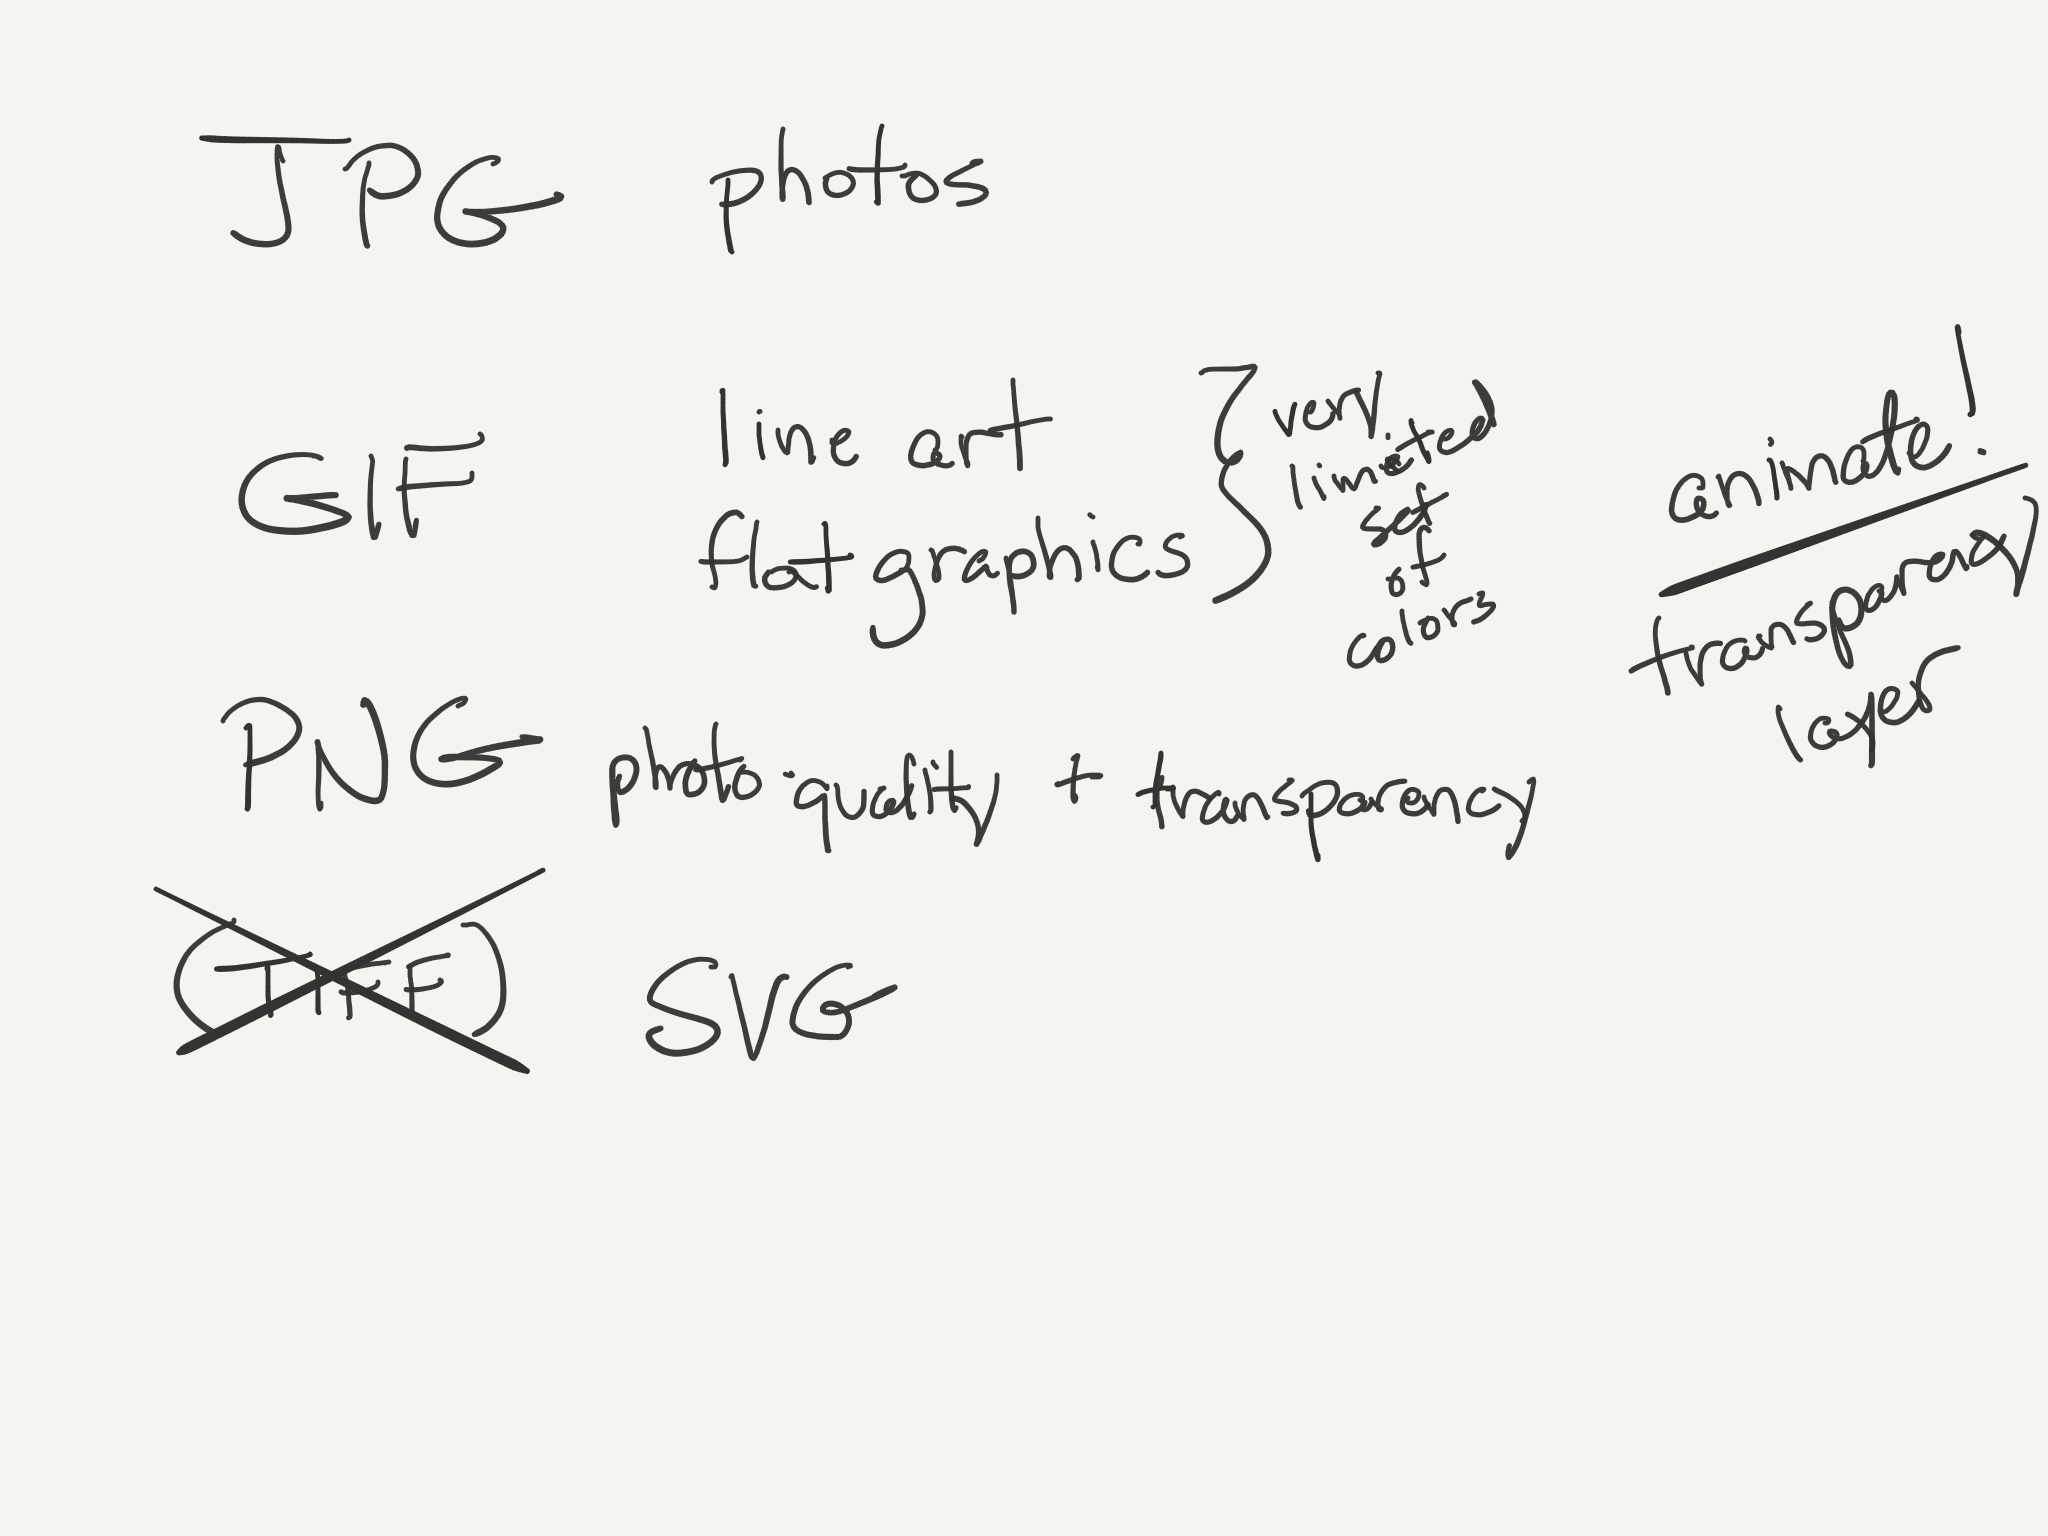 JPG photos
GIF line art
flat graphics
very
limited
set
of
colors
animate!
transparency
layer
PNG photo quality + transparency
(TIFF) SVG